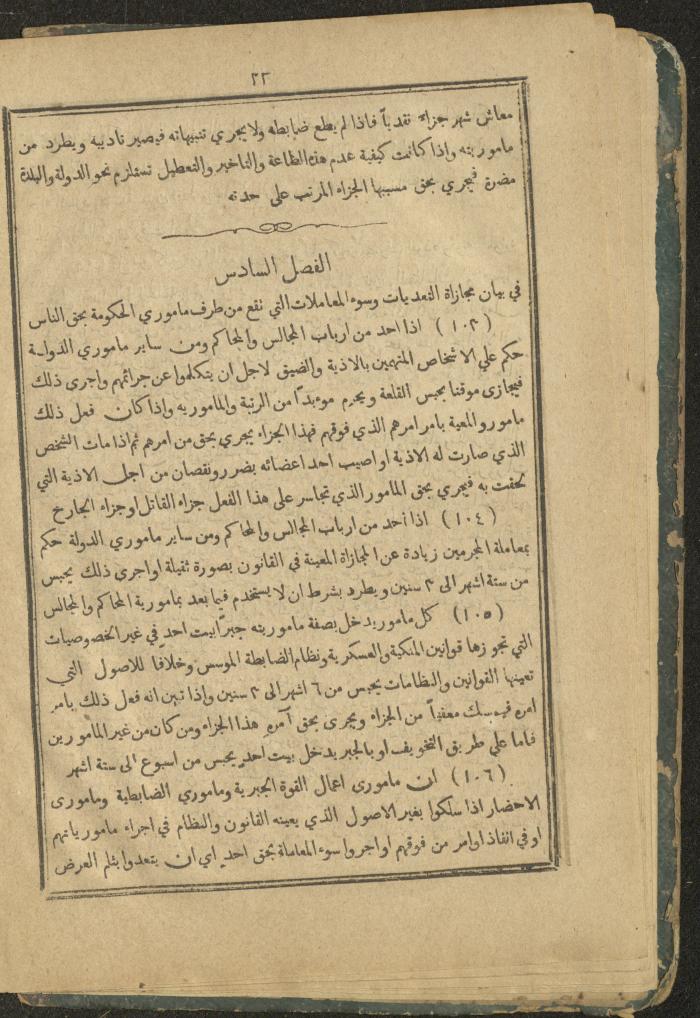 ٢٢
معاش شهر جزاءً نقدياً فاذا لم يطع ضابطه ولا يجري تنبيهاته فيصير تاديبه ويطرد من
ماموريته واذا كانت كيفية عدم هذه الطاعة والتاخير والتعطيل تستلزم نحو الدولة والبلدة
مضرة فيجري بحق مسببها الجزاء المرتب على حدته
الفصل السادس
في بيان مجازاة التعديات وسوء المعاملات التي تقع من طرف ماموري الحكومة بحق الناس
(١٠٣) اذا احد من ارباب المجالس والمحاكم ومن ساير ماموري الدولة
حكم علي الاشخاص المتهمين بالاذية والضيق لاجل ان يتكلموا عن جرائمهم واجرى ذلك
فيجازى موقتا بحبس القلعة ويحرم موءبدًا من الرتبة والماموريه واذا كان فعل ذلك
مامورو المعية بامر امرهم الذي فوقهم فهذا الجزاء يجري بحق من امرهم ثم اذا مات الشخص
الذي صارت له الاذية او اصيب احد اعضائه بضرر ونقصان من اجل الاذية التي
لحقت به فيجري بحق المامور الذي تجاسر على هذا الفعل جزاء القاتل او جزاء الجارح
(١٠٤) اذا أحد من ارباب المجالس والمحاكم ومن ساير ماموري الدولة حكم
بمعاملة المجرمين زيادة عن المجازاة المعينة في القانون بصورة ثقيلة او اجرى ذلك يحبس
من ستة اشهر الى ٣ سنين ويطرد بشرط ان لا يستخدم فيما بعد بمامورية المحاكم والمجالس
(١٠٥) كل مامور يدخل بصفة ماموريته جبرًا بيت احدٍ في غير الخصوصيات
التي تجوزها قوانين الملكية والعسكرية ونظام الضابطة الموسس وخلافًا للاصول التي
تعينها القوانين والنظامات يحبس من ٦ اشهر الى ٣ سنين واذا تبين انه فعل ذلك بامر
امره فيمسك معفياً من الجزاء ويجرى بحق آمره هذا الجزاء ومن كان من غير المامورين
فاما علي طريق التخويف او بالجبر يدخل بيت احدٍ يحبس من اسبوع الى ستة اشهر
(١٠٦) ان مامورى اعمال القوة الجبرية وماموري الضابطية ومامورى
الاحضار اذا سلكوا بغير الاصول الذي يعينه القانون والنظام في اجراء مامورياتهم
او في انفاذ اوامر من فوقهم او اجروا سوء المعاملة بحق احدٍ اي ان يتعدوا بثلم العرض